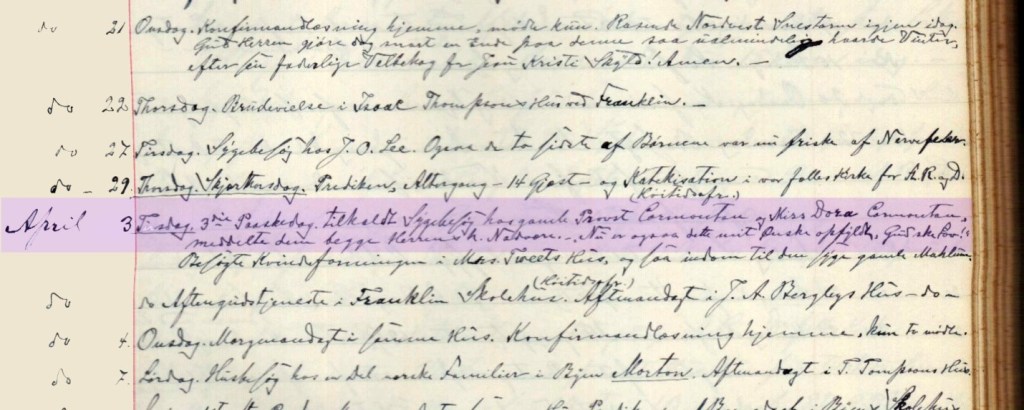 do 21 Onsdag. Konfirmandlæsning hjemme, mødte kun. Rasende Nordvest Snestorm igjen idag.
Gud Herren gjøre dog snart en Ende paa denne saa ualmindelig haarde Vinter,
efter sin faderlige Velbehag for Jesu Kristi Skyld! Amen. —
do 22 Thorsdag. Brudevielse i Isaac Thompsons Hus ved Franklin. —
do 27 Tirsdag. Sygebesøg hos J. O. Lee. Ogsaa de to sidste af Børnene var nu friske af Nervefeber.
do — 29. Thorsdag. Skjærthorsdag. Prediken, Altergang — 14 Gjæst — og Katekisation i vor fælles Kirke for St. R. og D.
(Kristidsfr.)
April 3 Tirsdag. 3die Paaskedag. tilkaldt Sygebesøg hos gamle Provst Cormontan og Miss Dora Cormontan,
meddelte dem begge Herrens h. Nadvere. — Nu er ogsaa dette mit Ønske opfyldt, Gud ske Lov!
Besøgte Kvindeforeningen i Mrs. Tweets Hus, og saa indom til den syge gamle
(Kristidsfr.)
do do Aftengudstjeneste i Franklin Skolehus. Aftenandagt i J. A. Berglys Hus — do —
do 4. Onsdag. Morgenandagt i samme Hus. Konfirmandlæsning hjemme, kun to mødte.
do 7. Lørdag. Husbesøg hos en Del norske Familier i Byen Morton. Aftenandagt i T. Tompsons Hus.